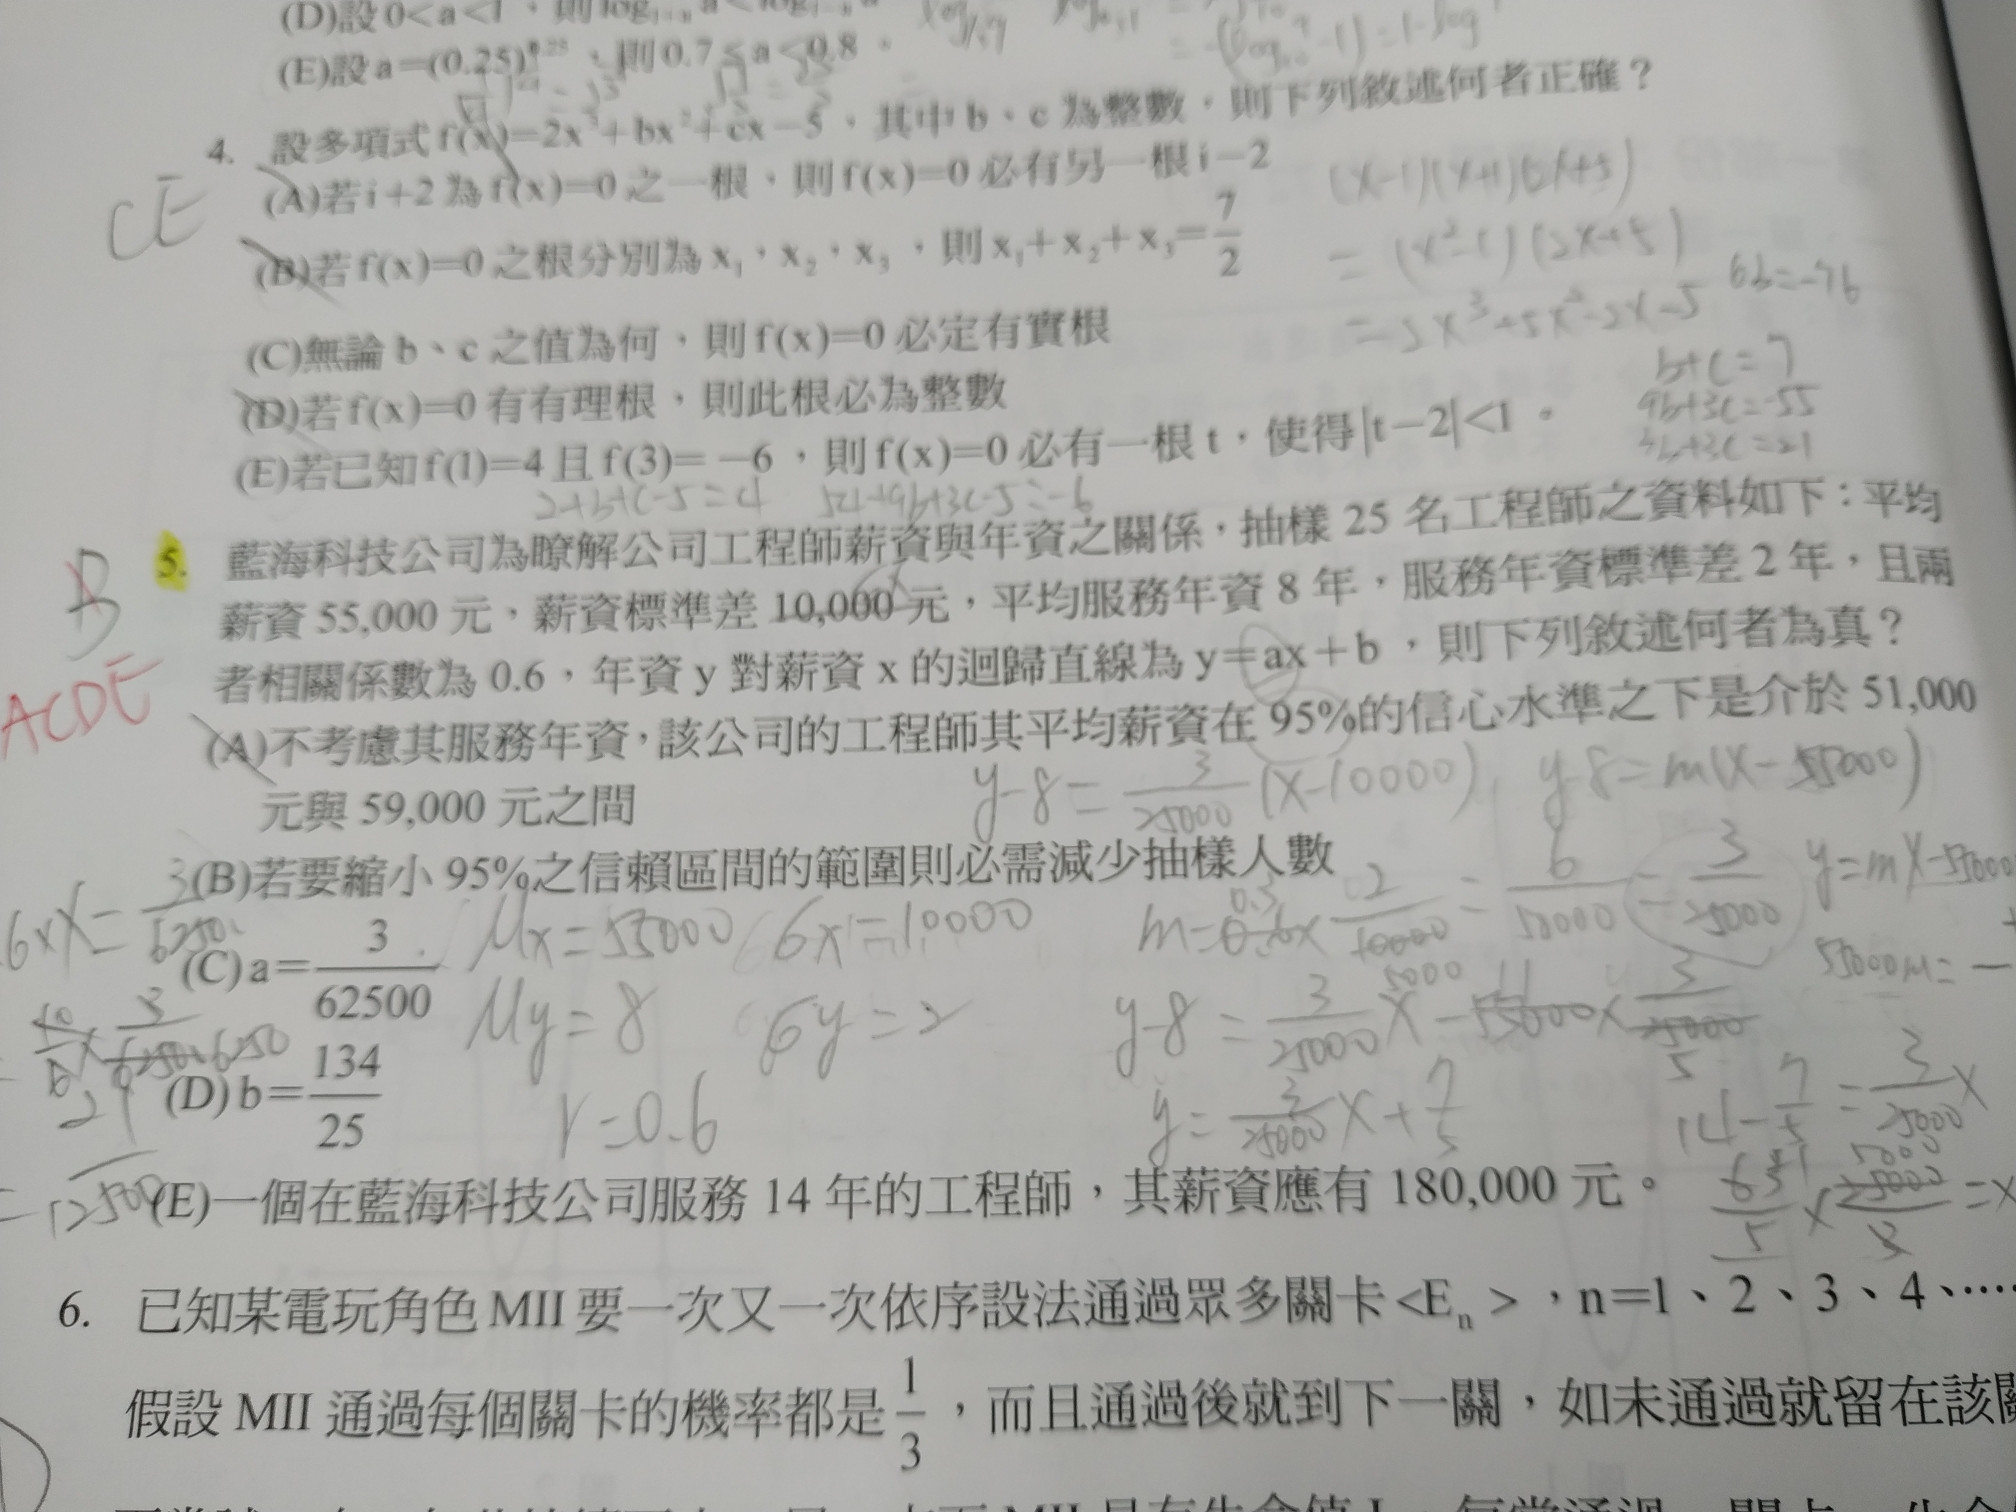 (D)設0<a<1，則log
(E)設a=(0.25)^0.25，則0.7≤a<0.8。
4. 設多項式f(x)=2x³+bx²+cx−5，其中b、c為整數，則下列敘述何者正確？
(A)若i+2為f(x)=0之一根，則f(x)=0必有另一根i−2
(x-1)(x+1)(2x+5)
CE
(B)若f(x)=0之根分別為x₁，x₂，x₃，則x₁+x₂+x₃=7/2
=(x²-1)(2x+5)
6b=-76
=2x³+5x²-2x-5
(C)無論b、c之值為何，則f(x)=0必定有實根
b+c=7
(D)若f(x)=0有有理根，則此根必為整數
9b+3c=-55
(E)若已知f(1)=4且f(3)=−6，則f(x)=0必有一根t，使得|t−2|<1。
3b+3c=21
2+b+c-5=4 54+9b+3c-5=-6
5. 藍海科技公司為瞭解公司工程師薪資與年資之關係，抽樣25名工程師之資料如下：平均
B
薪資55,000元，薪資標準差10,000元，平均服務年資8年，服務年資標準差2年，且兩
者相關係數為0.6，年資y對薪資x的迴歸直線為y=ax+b，則下列敘述何者為真？
ACDE
(A)不考慮其服務年資，該公司的工程師其平均薪資在95%的信心水準之下是介於51,000
元與59,000元之間
y-8=3/25000(x-10000) y-8=m(x-55000)
(B)若要縮小95%之信賴區間的範圍則必需減少抽樣人數
y=mx-55000
(C)a=3/62500
Mx=55000 6x=10000
m=0.6×2/10000=6/50000=3/25000
55000m=
My=8 6y=2
y-8=3/25000x-55000×3/25000
(D)b=134/25
r=0.6
y=3/25000x+7/5
14-7/5=3/25000x
(E)一個在藍海科技公司服務14年的工程師，其薪資應有180,000元。
12500
63/5×25000/3=x
6. 已知某電玩角色MII要一次又一次依序設法通過眾多關卡<Eₙ>，n=1、2、3、4、……
假設MII通過每個關卡的機率都是1/3，而且通過後就到下一關，如未通過就留在該關